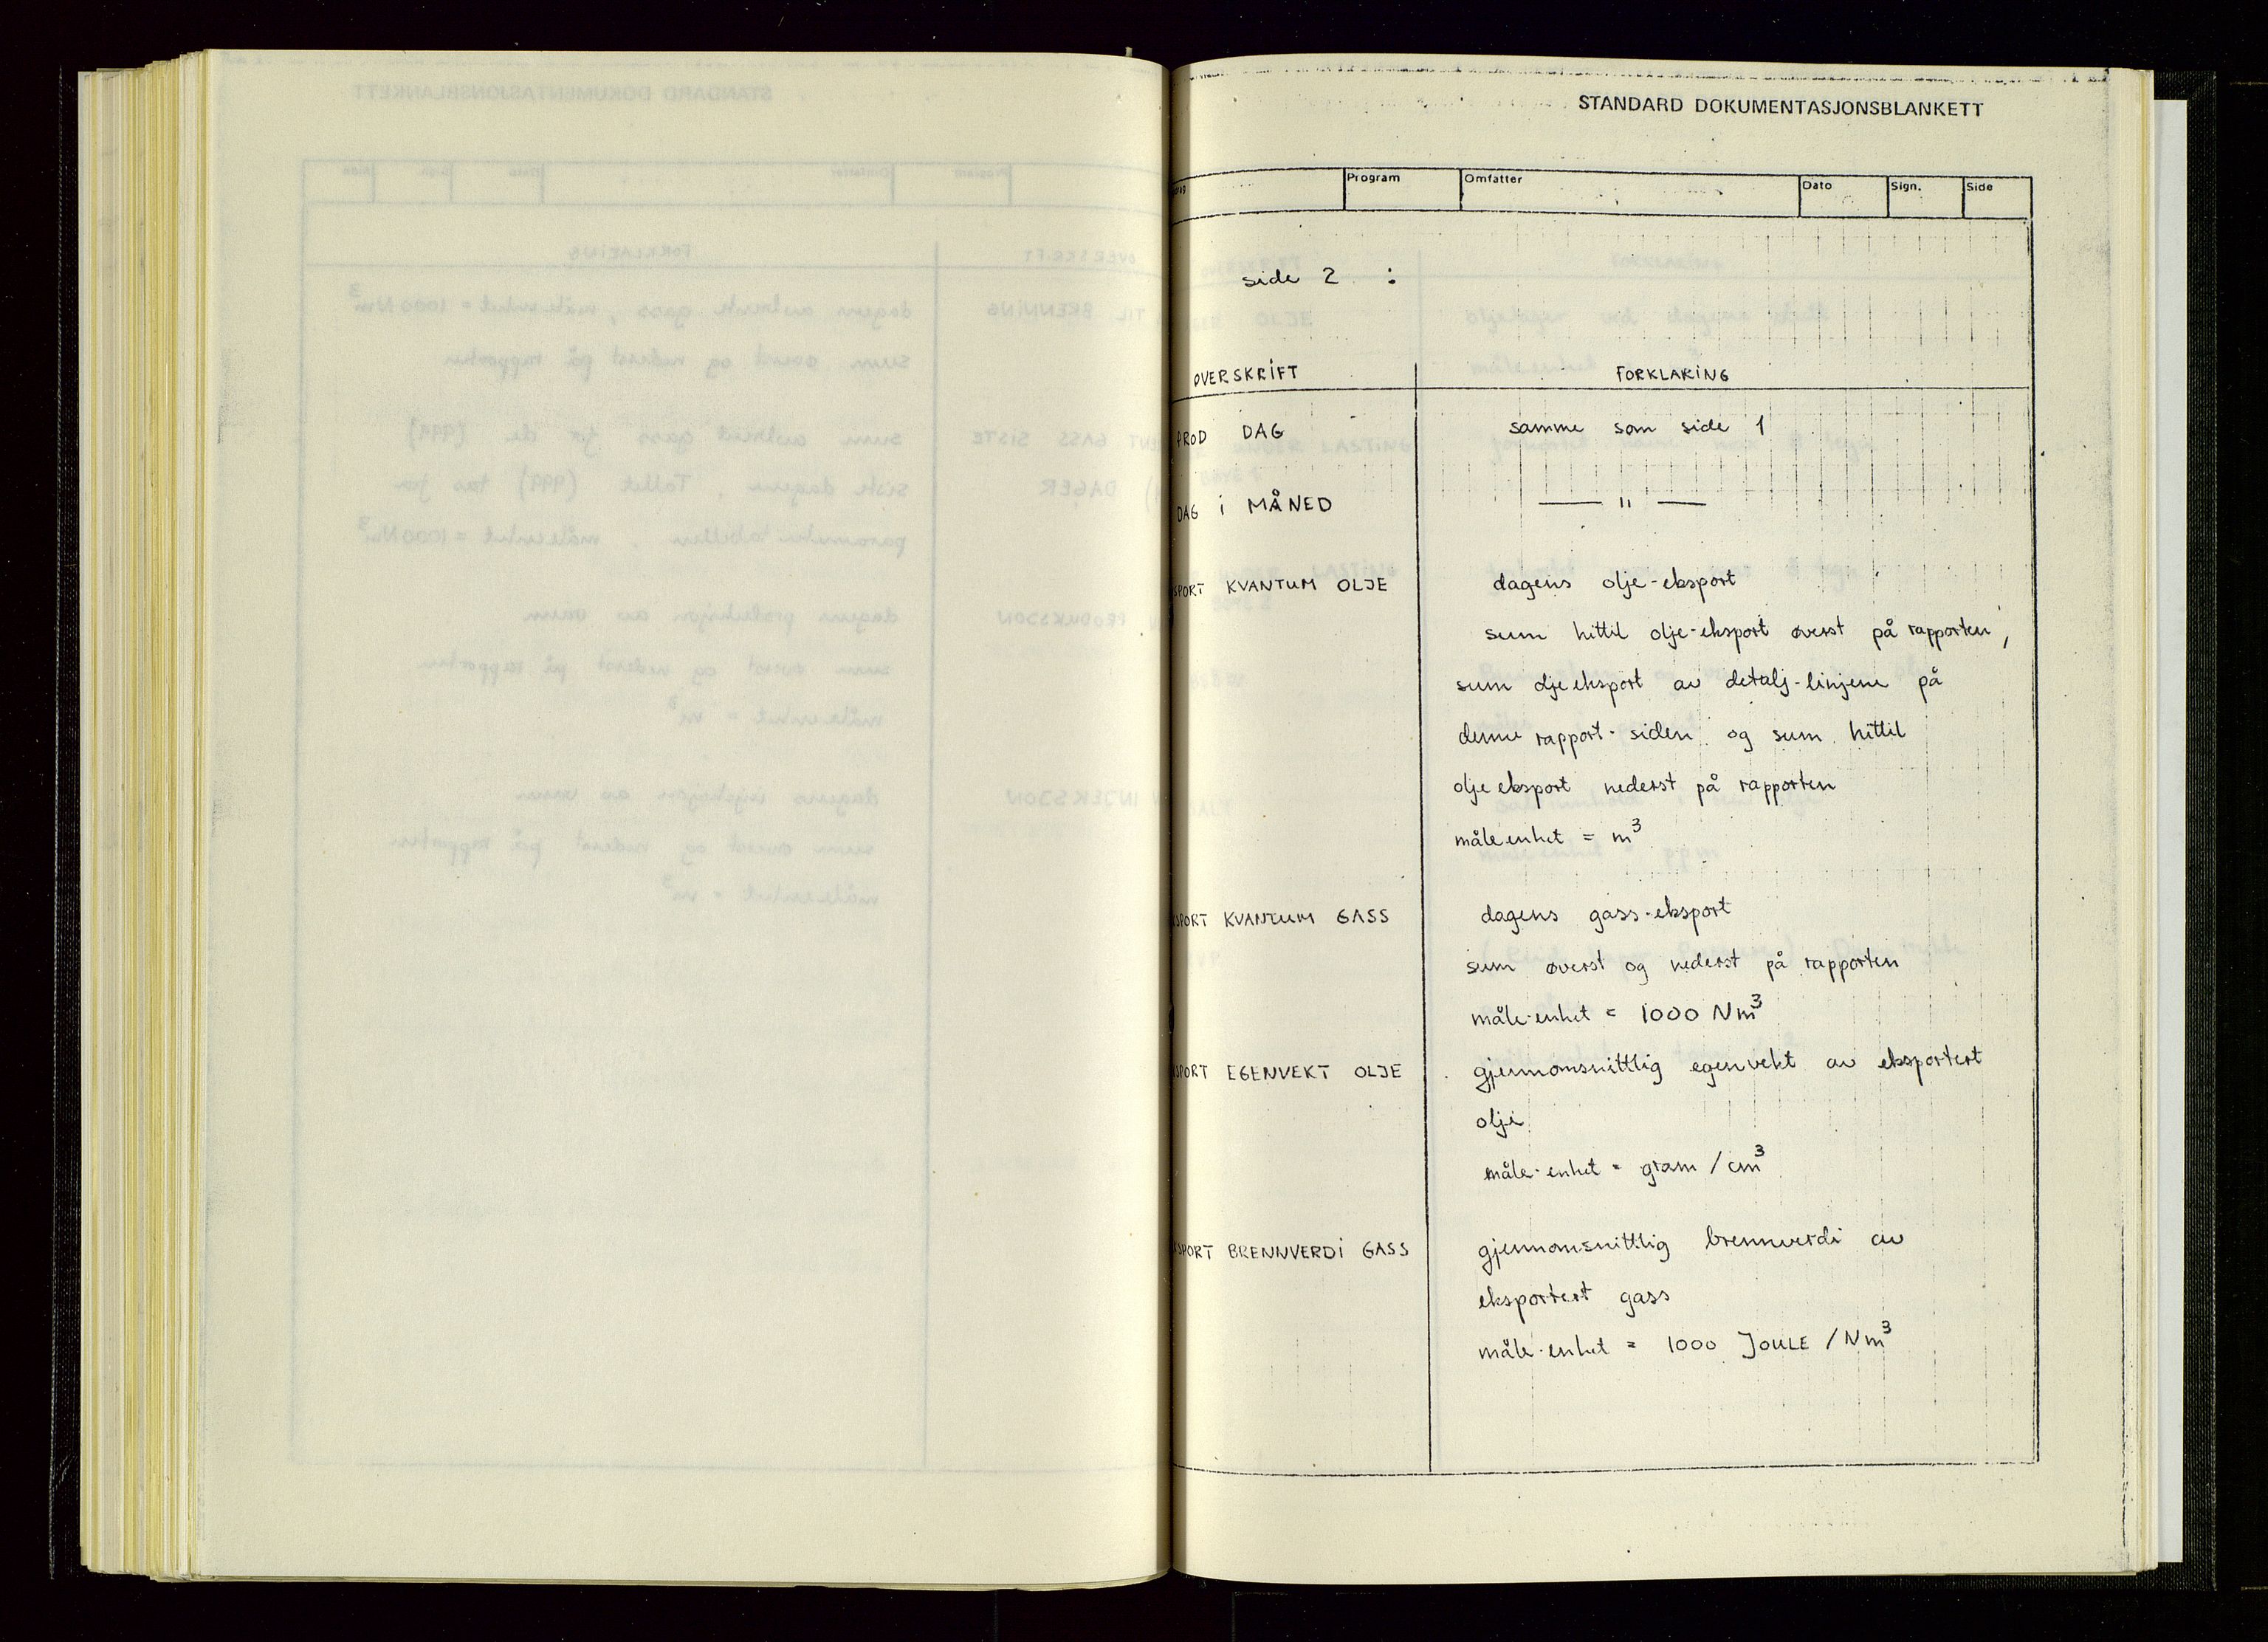 STANDARD DOKUMENTASJONSBLANKETT
Program Omfatter Dato Sign. Side
side 2 :
OVERSKRIFT FORKLARING
PROD DAG samme som side 1
DAG i MÅNED — " —
SPORT KVANTUM OLJE dagens olje-eksport
sum hittil olje-eksport øverst på rapporten,
sum olje eksport av detalj-linjene på
denne rapport-siden og sum hittil
olje eksport nederst på rapporten
måle enhet = m³
SPORT KVANTUM GASS dagens gass-eksport
sum øverst og nederst på rapporten
måle-enhet = 1000 Nm³
SPORT EGENVEKT OLJE gjennomsnittlig egenvekt av eksportert
olje
måle-enhet = gram / cm³
SPORT BRENNVERDI GASS gjennomsnittlig brennverdi av
eksportert gass
måle-enhet = 1000 JOULE / Nm³